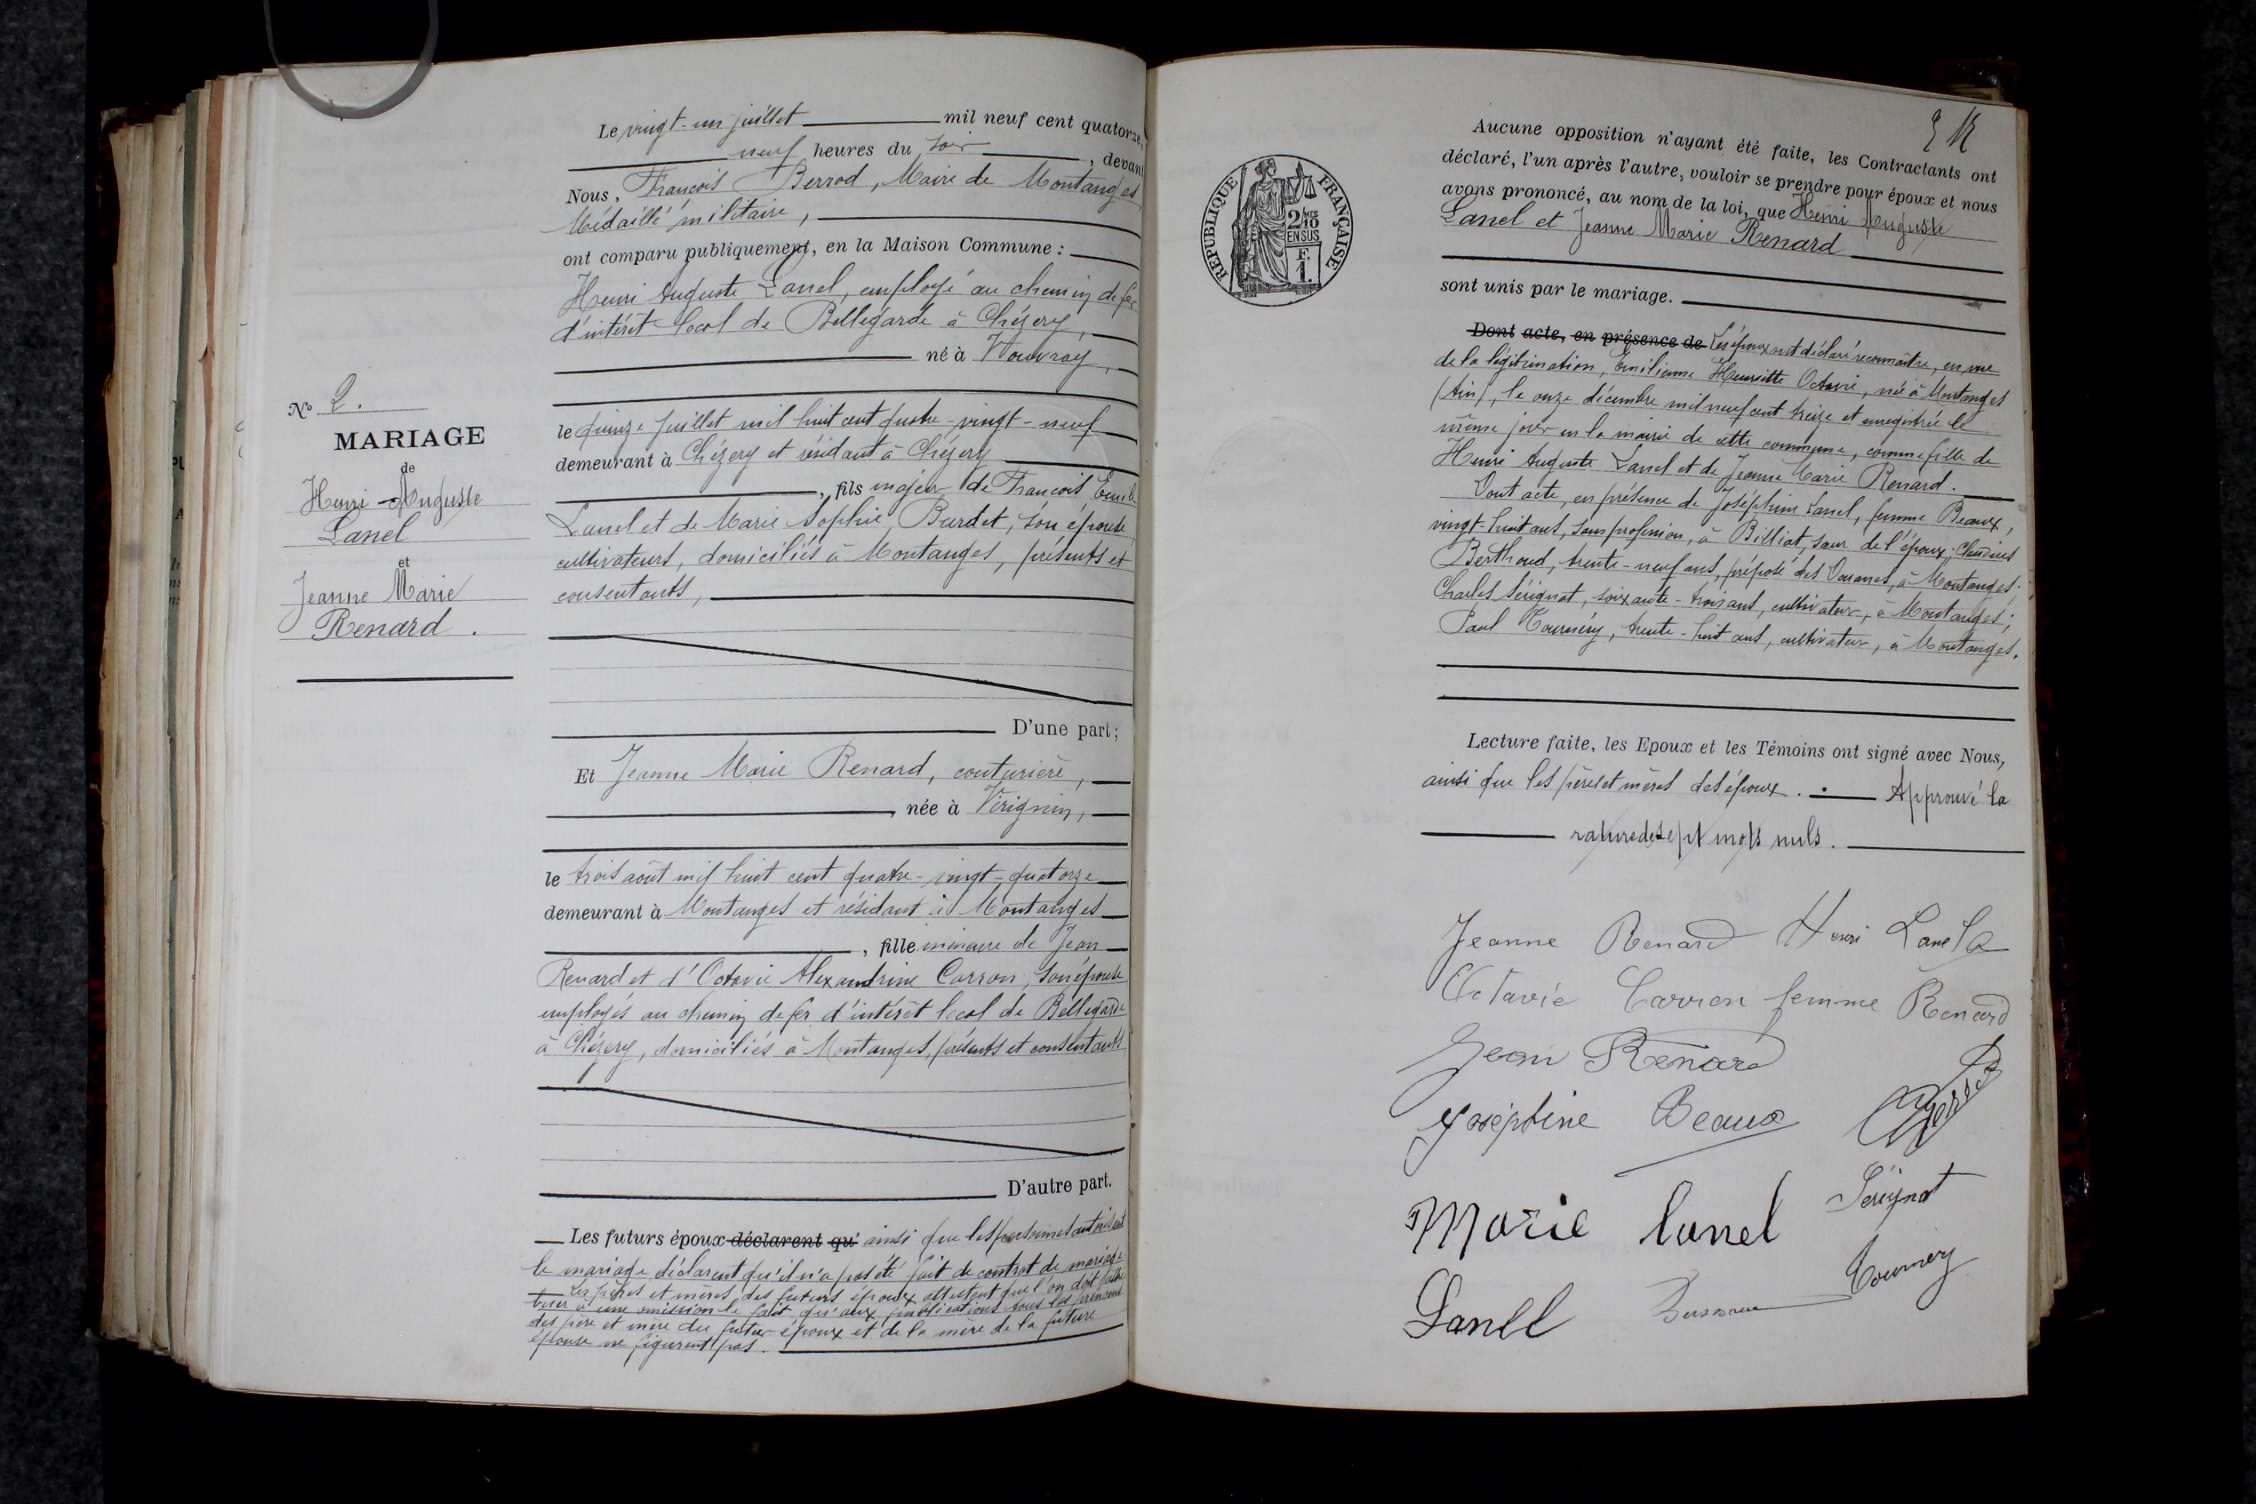 Le vingt-un juillet mil neuf cent quatorze,
neuf heures du soir, devant
Nous, François Berrod, Maire de Montanges
Médaillé militaire,
ont comparu publiquement, en la Maison Commune :
Henri Auguste Lanel, employé au chemin de fer
d'intérêt local de Bellegarde à Chézery,
né à Vouvray,
le quinze juillet mil huit cent quatre-vingt-neuf
demeurant à Chézery et résidant à Chézery
, fils majeur de François Emile
Lanel et de Marie Sophie Burdet, son épouse
cultivateurs, domiciliés à Montanges, présents et
consentants,
D'une part ;
N° 2.
MARIAGE
de
Henri Auguste
Lanel
et
Jeanne Marie
Renard.
Et Jeanne Marie Renard, couturière,
, née à Virignin,
le trois août mil huit cent quatre-vingt-quatorze
demeurant à Montanges et résidant à Montanges
, fille mineure de Jean
Renard et d'Octavie Alexandrine Carron, son épouse
employés au chemin de fer d'intérêt local de Bellegarde
à Chézery, domiciliés à Montanges, présents et consentants
D'autre part.
Les futurs époux déclarent qu' ainsi que les personnes autorisant
le mariage déclarent qu'il n'a pas été fait de contrat de mariage
Les pères et mères des futurs époux attestent que l'on doit attri
buer à une omission le fait qu'aux publications tous les prénoms
des père et mère du futur époux et de la mère de la future
épouse ne figurent pas.
RÉPUBLIQUE FRANÇAISE
2/10
EN SUS
F.
1.
Aucune opposition n'ayant été faite, les Contractants ont
déclaré, l'un après l'autre, vouloir se prendre pour époux et nous
avons prononcé, au nom de la loi, que Henri Auguste
Lanel et Jeanne Marie Renard
sont unis par le mariage.
Dont acte, en présence de Les époux ont déclaré reconnaître, en vue
de la légitimation, Emilienne Henriette Octavie, née à Montanges
(Ain), le onze décembre mil neuf cent treize et enregistrée le
même jour en la mairie de cette commune, comme fille de
Henri Auguste Lanel et de Jeanne Marie Renard.
Dont acte, en présence de Joséphine Lanel, femme Beaux,
vingt-huit ans, sans profession, à Billiat, sœur de l'époux; Claudius
Berthoud, trente-neuf ans, préposé des Douanes, à Montanges;
Charles Sérignat, soixante-trois ans, cultivateur, à Montanges;
Paul Tournéry, trente-huit ans, cultivateur, à Montanges.
Lecture faite, les Epoux et les Témoins ont signé avec Nous,
ainsi que les pères et mères des époux. Approuvé la
rature de sept mots nuls.
Jeanne Renard Henri Lanel
Octavie Carron femme Renard
Jean Renard
Joséphine Beaux
Marie Lanel Sérignat
Lanel Tournery